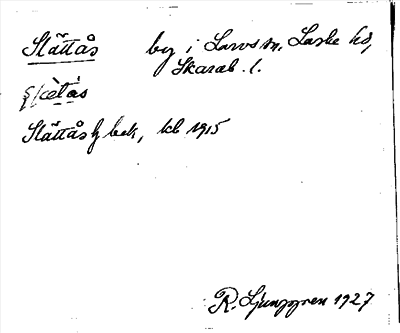 Slättås by i Larvs sn, Laske hd,
Skarab. l.
Slättås bek, kb 1915
R. Ljunggren 1927